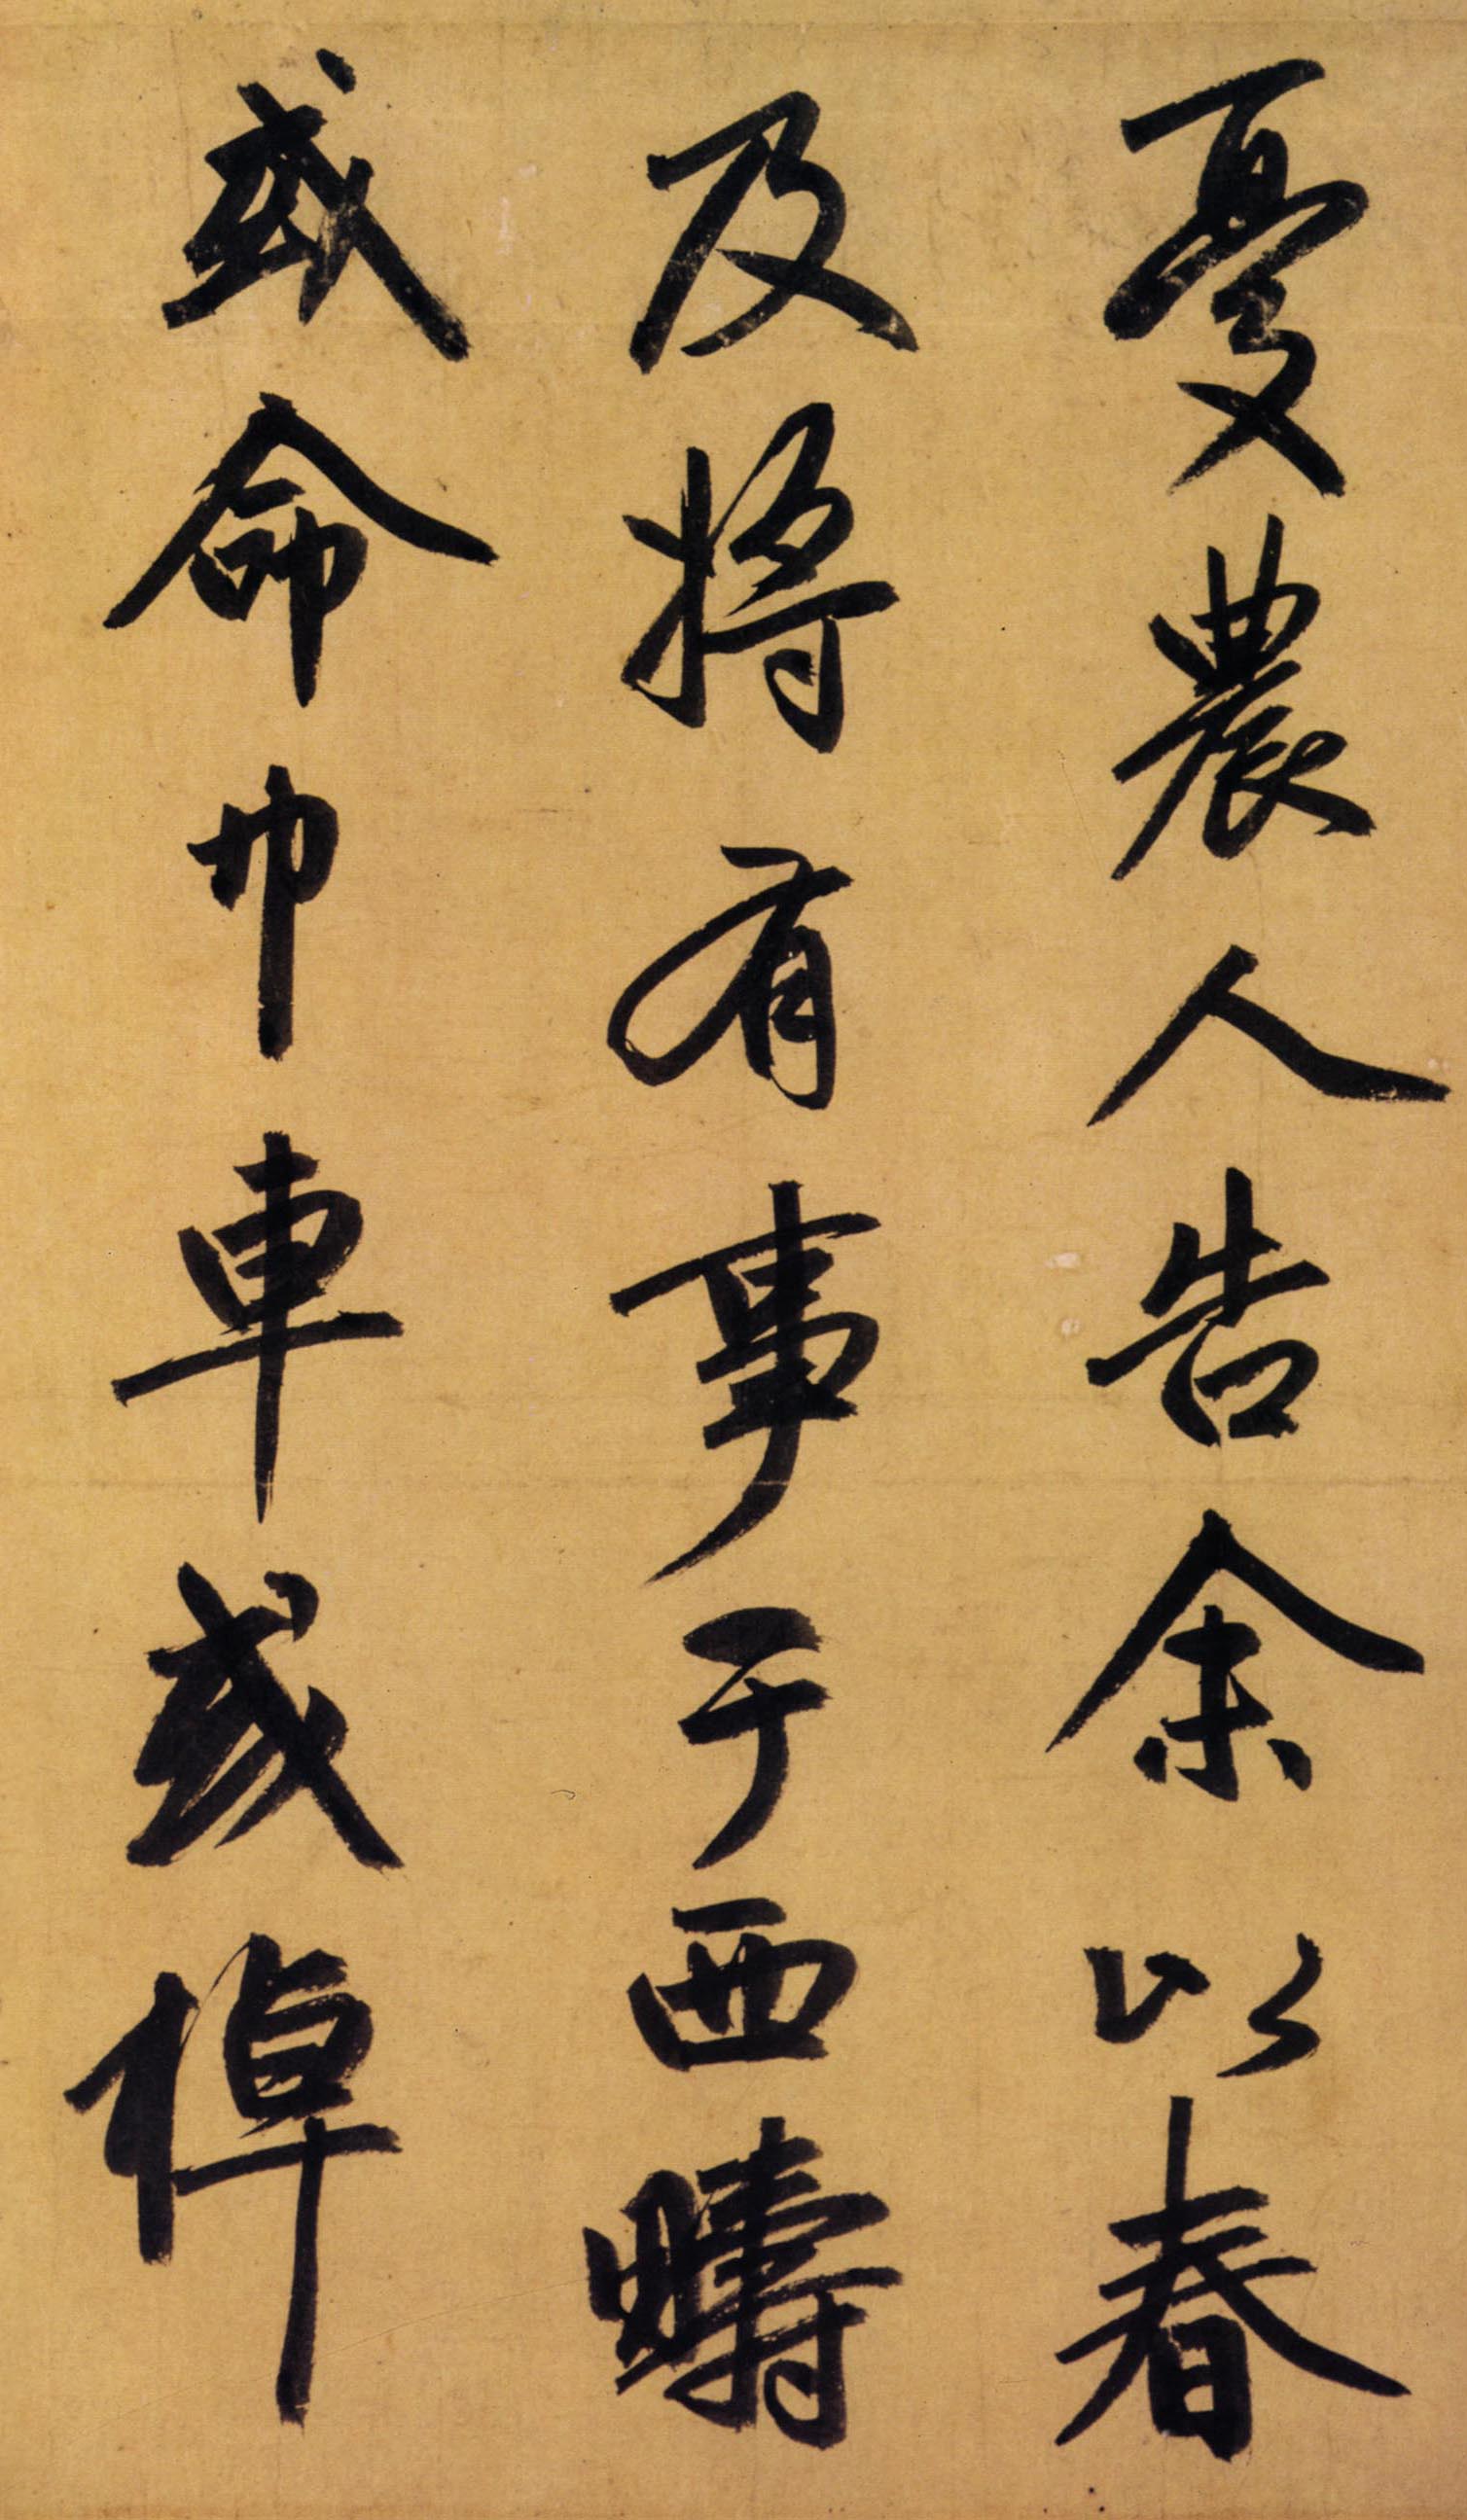 憂農人告余以春
及將有事于西疇
或命巾車或棹